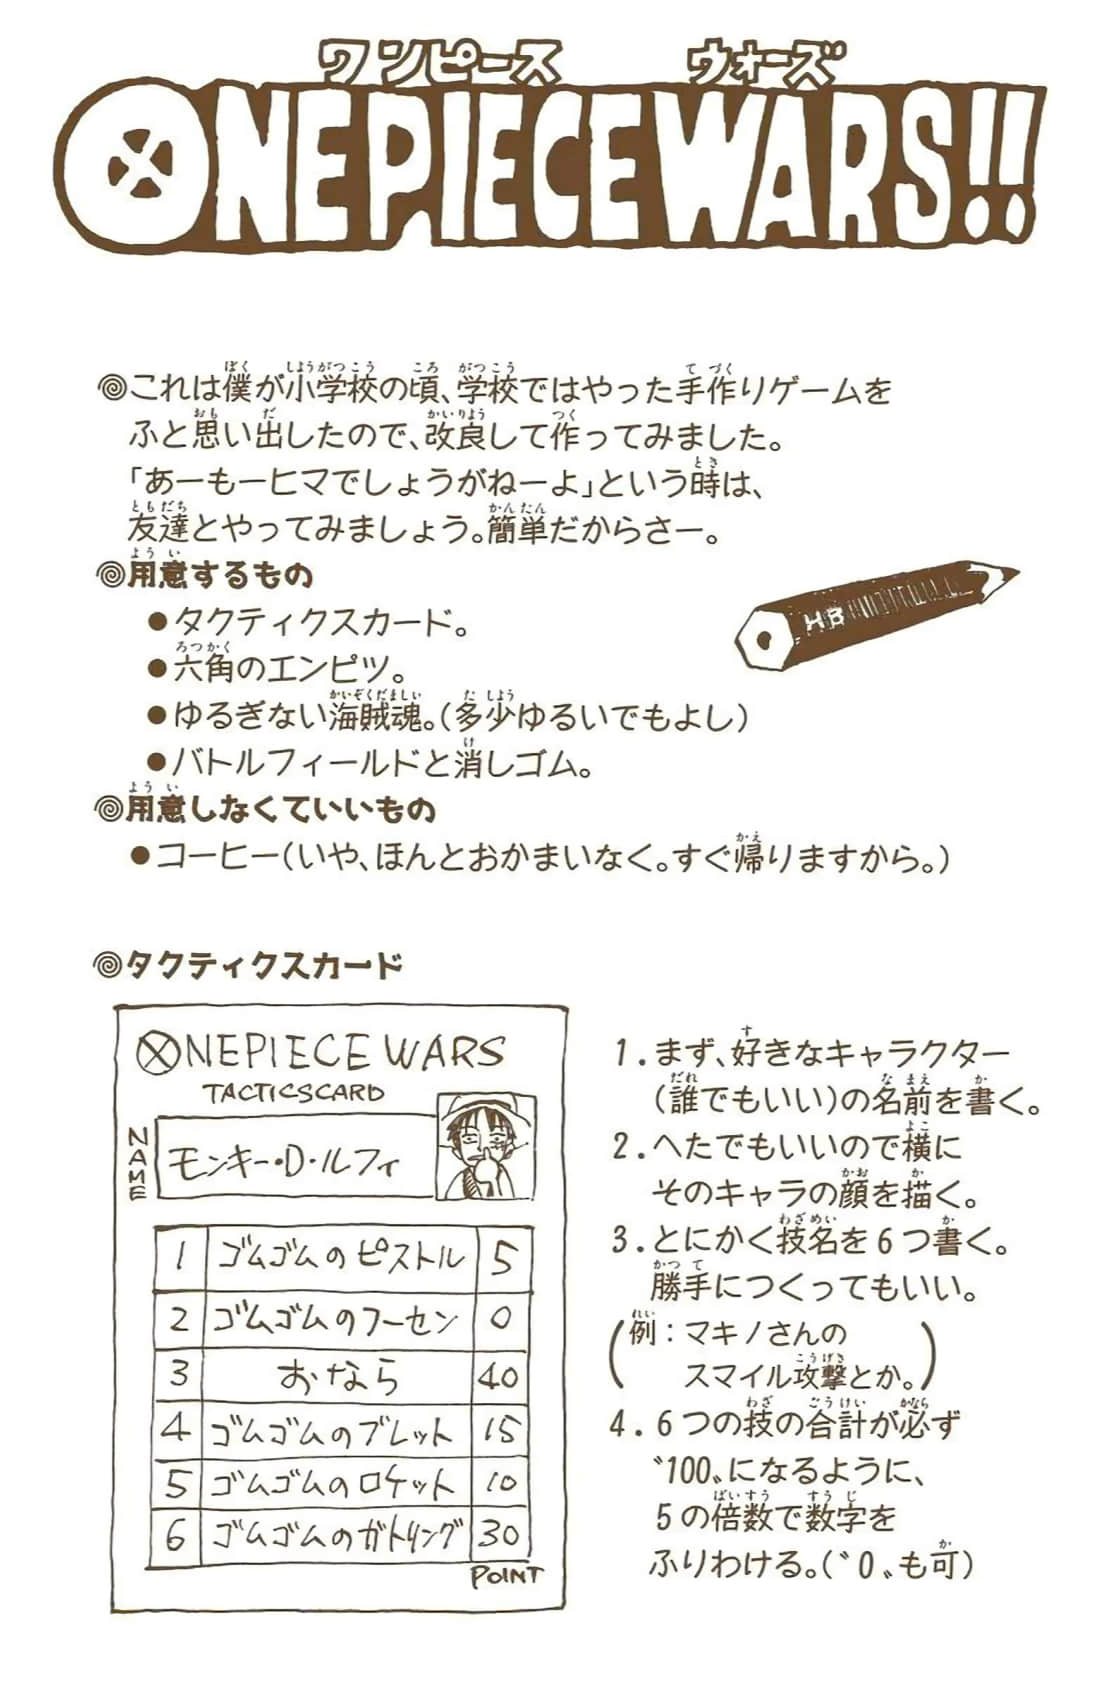 ワンピース ウォーズ
ONE PIECE WARS!!
これは僕が小学校の頃、学校ではやった手作りゲームを
ふと思い出したので、改良して作ってみました。
「あーもーヒマでしょうがねーよ」という時は、
友達とやってみましょう。簡単だからさー。
用意するもの
●タクティクスカード。
●六角のエンピツ。
●ゆるぎない海賊魂。(多少ゆるいでもよし)
●バトルフィールドと消しゴム。
HB
用意しなくていいもの
●コーヒー(いや、ほんとおかまいなく。すぐ帰りますから。)
タクティクスカード
ONEPIECE WARS
TACTICSCARD
NAME
モンキー・D・ルフィ
1 ゴムゴムのピストル 5
2 ゴムゴムのフーセン 0
3 おなら 40
4 ゴムゴムのブレット 15
5 ゴムゴムのロケット 10
6 ゴムゴムのガトリング 30
POINT
1.まず、好きなキャラクター
(誰でもいい)の名前を書く。
2.へたでもいいので横に
そのキャラの顔を描く。
3.とにかく技名を6つ書く。
勝手につくってもいい。
(例：マキノさんの
スマイル攻撃とか。)
4.6つの技の合計が必ず
〝100〟になるように、
5の倍数で数字を
ふりわける。(〝0〟も可)